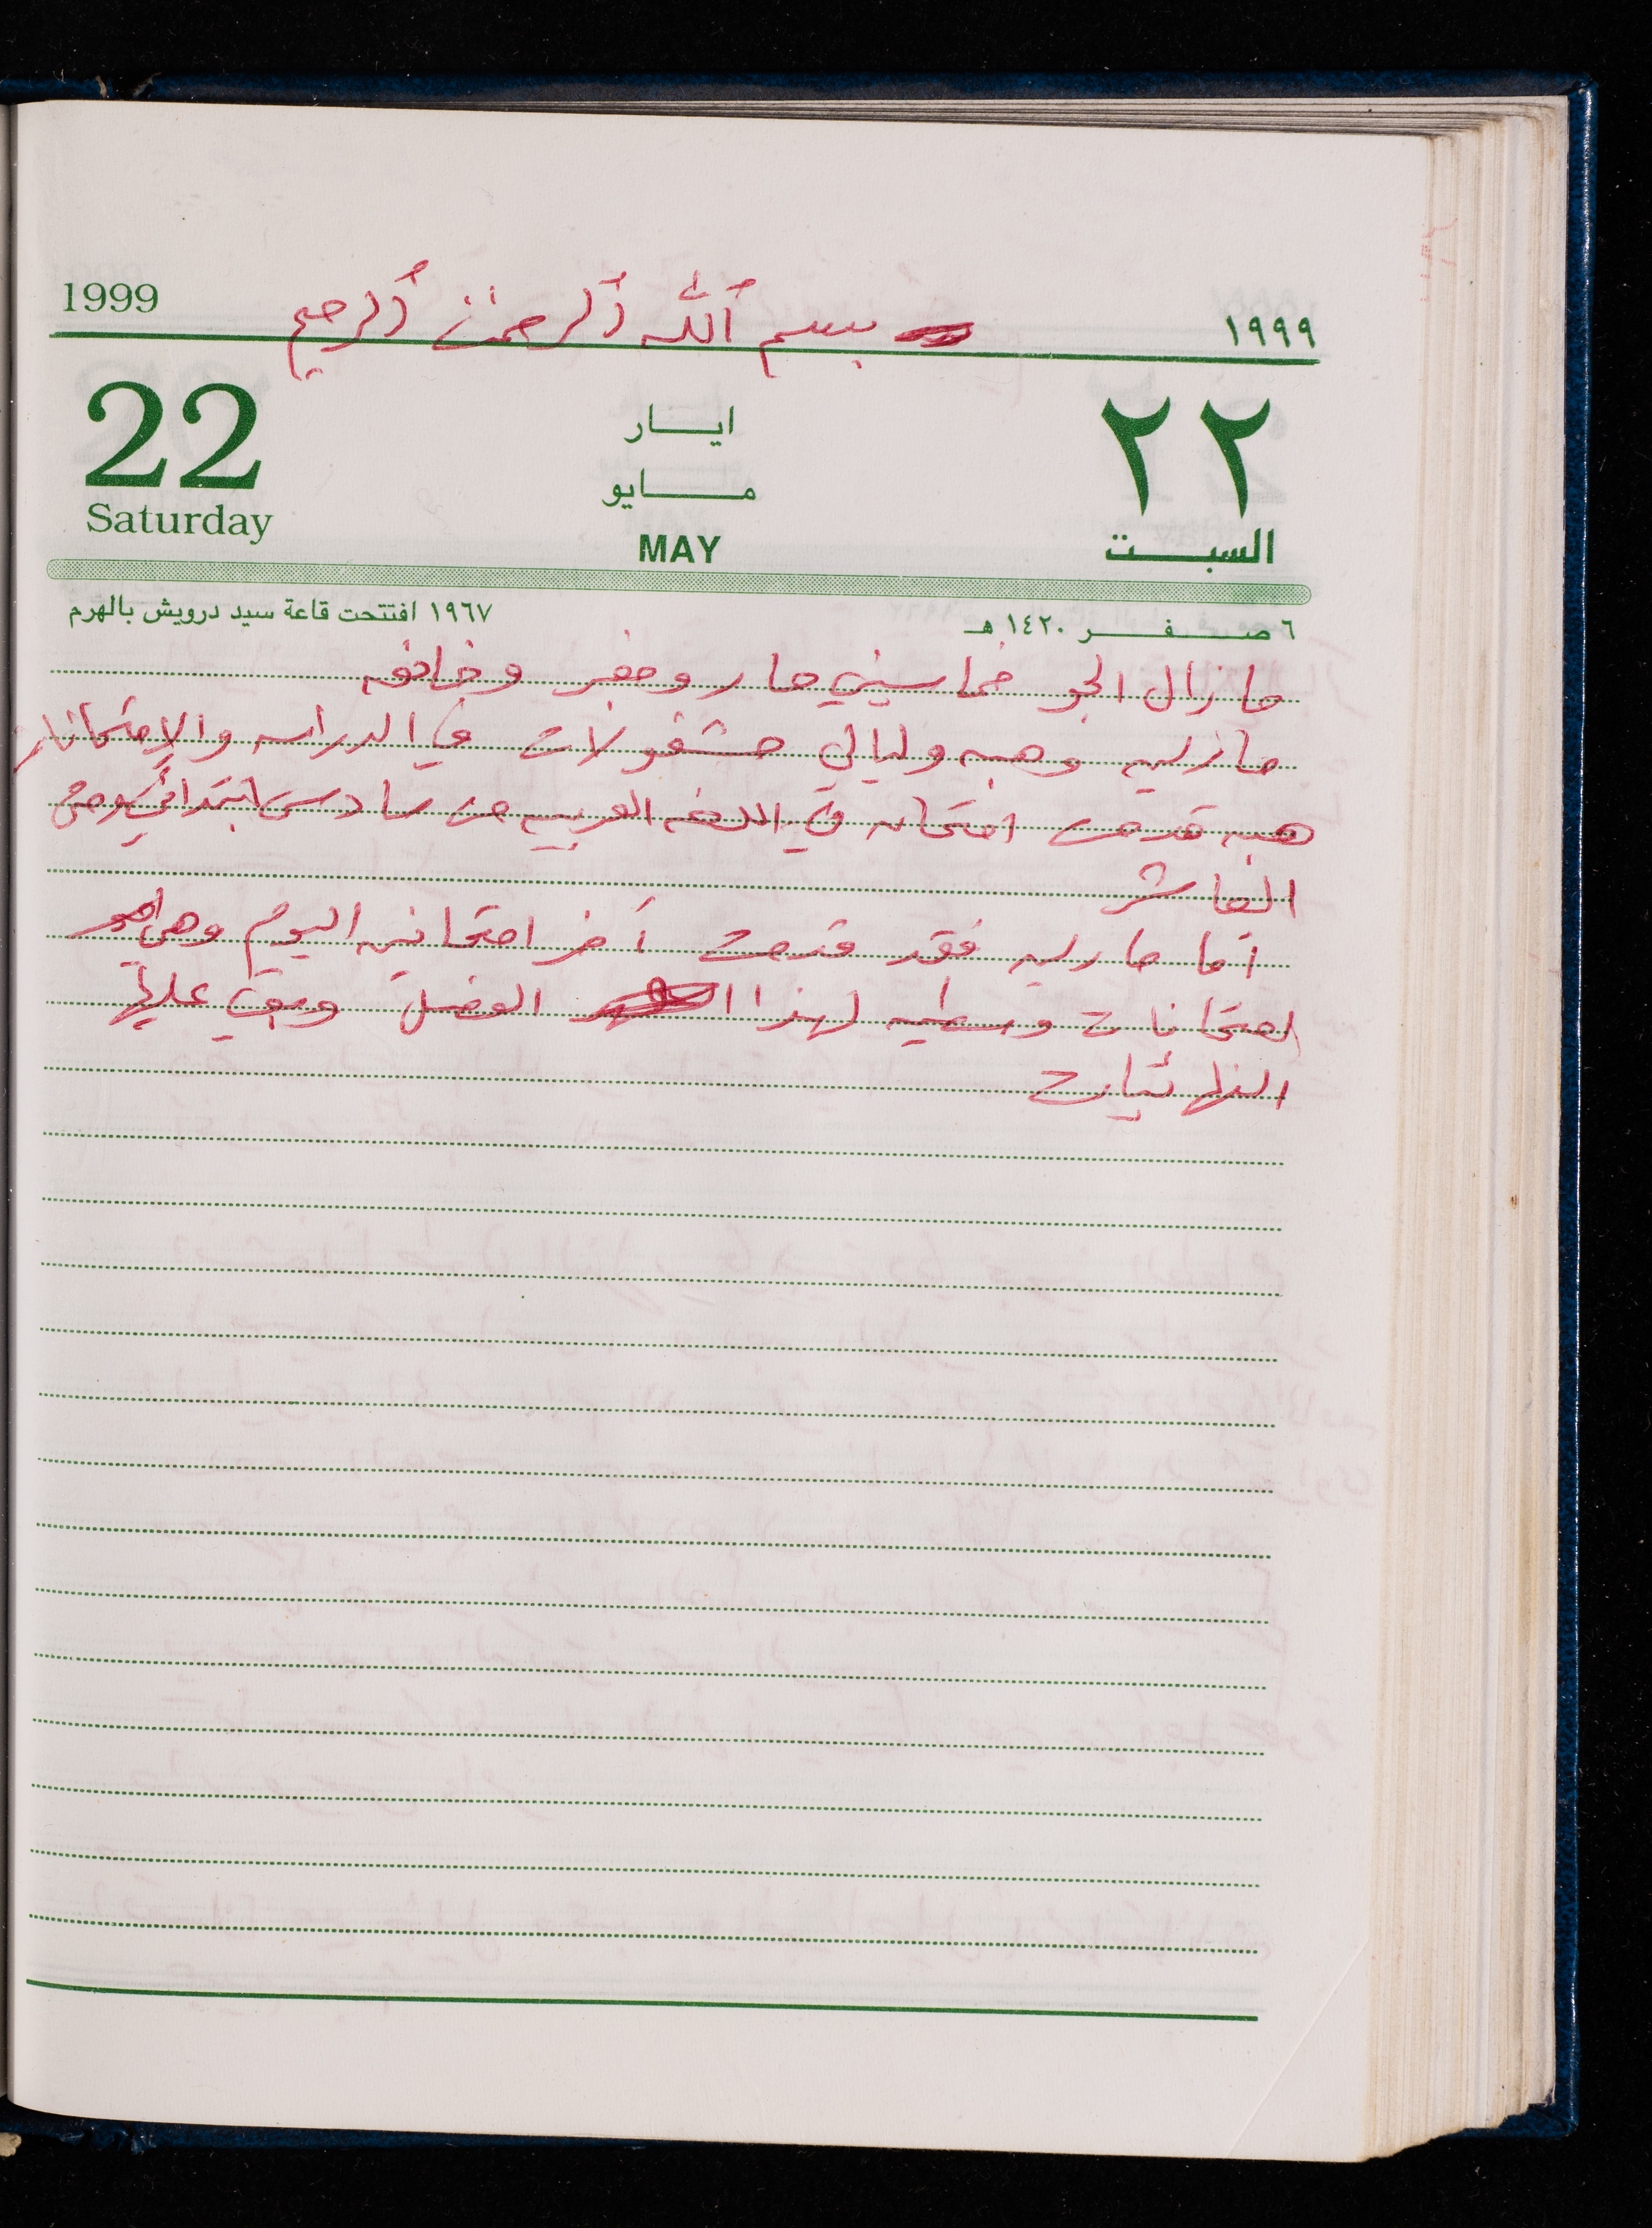 1999
١٩٩٩
بسم الله الرحمن الرحيم
22
Saturday
ايار
مايو
MAY
٢٢
السبت
٦ صفر ١٤٢٠ هـ
١٩٦٧ افتتحت قاعة سيد درويش بالهرم
ما زال الجو خماسيني حار ومغبر وخانقه
ماريه وهبه وليالي مشغولات في الدراسه والإمتحانات
هبه قدمت امتحانه في اللغه العربيه من سادس ابتدائي وحتى
العاشر
أما ماريه فقد قدمت آخر امتحانيه اليوم وهي
امتحانات وسطيه لهذا الفصل وبقي عليها
النهائيات